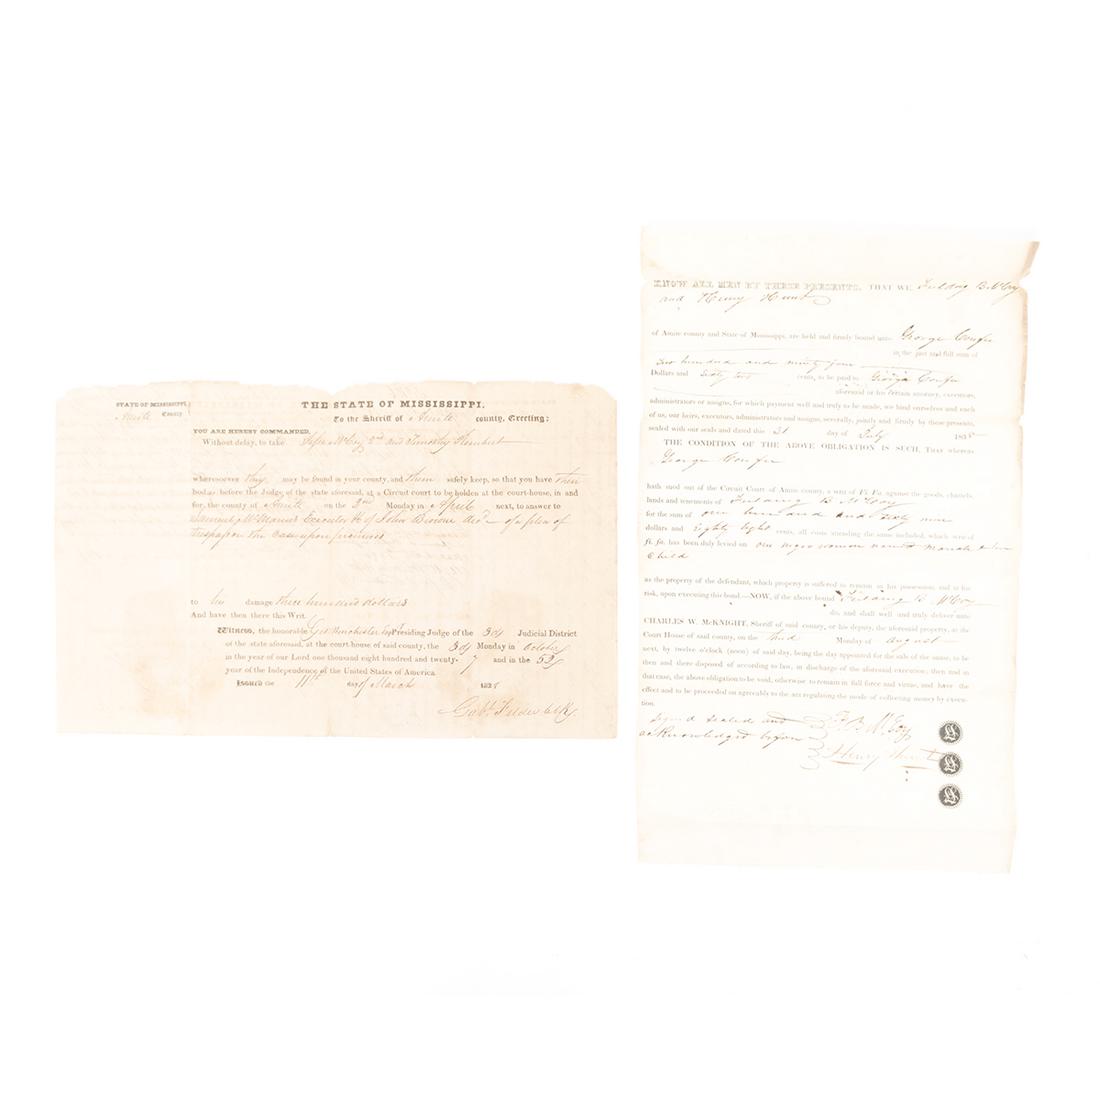 STATE OF MISSISSIPPI,
Amite County
THE STATE OF MISSISSIPPI,
To the Sheriff of Amite county, Greeting:
YOU ARE HEREBY COMMANDED,
Without delay, to take McCoy and Timothy
wheresoever they may be found in your county, and them safely keep, so that you have their
bodies before the Judge of the state aforesaid, at a Circuit court to be holden at the court-house, in and
for, the county of Amite on the 2nd Monday in April next, to answer to
Executor of John Browne of a plea of
trespass on the case upon promises
to his damage three hundred dollars
And have then there this Writ.
Witness, the honorable Geo Winchester Esqr Presiding Judge of the 3d Judicial District
of the state aforesaid, at the court-house of said county, the 3d Monday in October
in the year of our Lord one thousand eight hundred and twenty-7 and in the 52d
year of the Independence of the United States of America.
Issued the 11th day of March 1828
Clk
KNOW ALL MEN BY THESE PRESENTS, THAT WE, Fielding B. McCoy
and Henry Hunt
of Amite county and State of Mississippi, are held and firmly bound unto George
in the just and full sum of
hundred and ninty four
Dollars and sixty two cents, to be paid to George
aforesaid or his certain attorney, executors,
administrators or assigns, for which payment well and truly to be made, we bind ourselves and each
of us, our heirs, executors, administrators and assigns, severally, jointly and firmly by these presents,
sealed with our seals and dated this day of July
THE CONDITION OF THE ABOVE OBLIGATION IS SUCH, That whereas
George
hath sued out of the Circuit Court of Amite county, a writ of Fi. Fa. against the goods, chattels,
lands and tenements of Fielding B McCoy
for the sum of one hundred and sixty nine
dollars and Eighty Eight cents, all costs attending the same included, which writ of
fi. fa. has been duly levied on one negro woman named and her
Child
as the property of the defendant, which property is suffered to remain in his possession, and at his
risk, upon executing this bond.—NOW, if the above bound Fielding B McCoy
do, and shall well and truly deliver unto
CHARLES W. McKNIGHT, Sheriff of said county, or his deputy, the aforesaid property, at the
Court House of said county, on the third Monday of august
next, by twelve o'clock (noon) of said day, being the day appointed for the sale of the same, to be
then and there disposed of according to law, in discharge of the aforesaid execution; then and in
that case, the above obligation to be void, otherwise to remain in full force and virtue, and have the
effect and to be proceeded on agreeably to the act regulating the mode of collecting money by execu-
tion.
signed sealed and F B McCoy
acknowledged before Henry Hunt